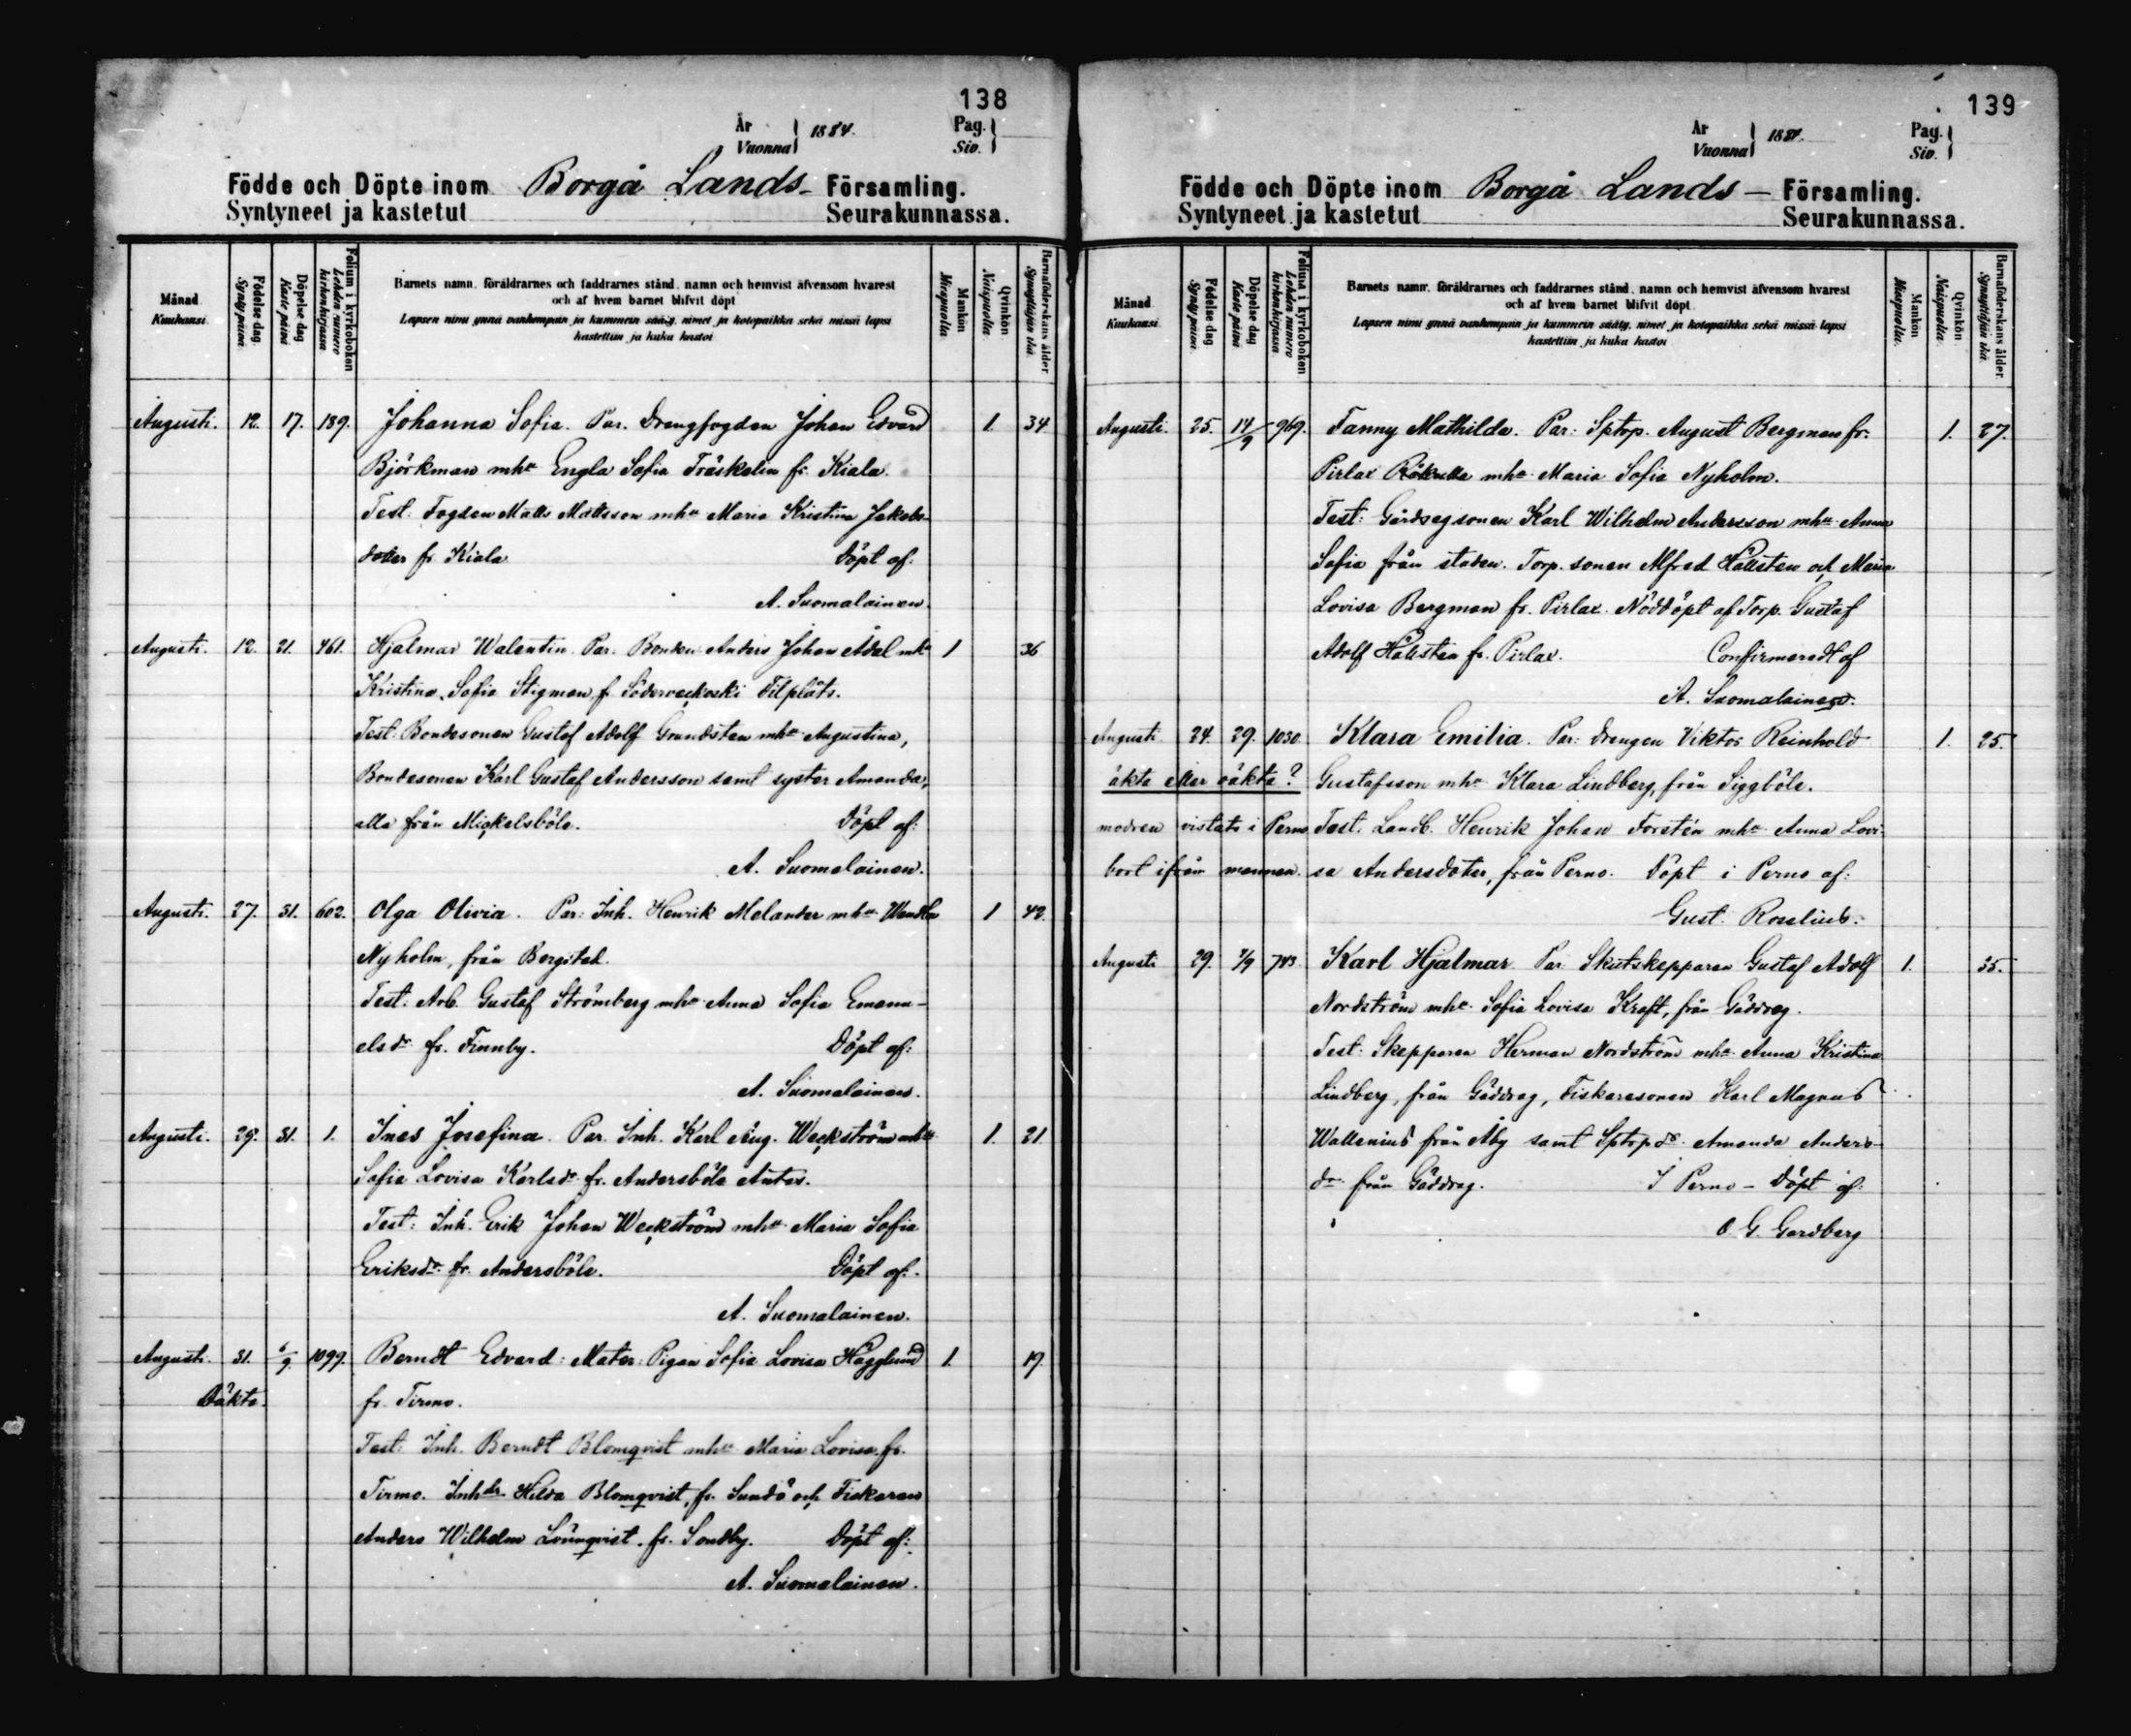 138
År
Vuonna } 1884.
Pag.
Siv. }
Födde och Döpte inom Borgå Lands- Församling.
Syntyneet ja kastetut Seurakunnassa.
Månad
Kuukausi
Födelse dag
Synty päinä
Döpelse dag
Kaste päinä
Folium i kyrkoboken
Lehden numero kirkonkirjassa
Barnets namn, föräldrarnes och faddrarnes stånd, namn och hemvist äfvensom hvarest
och af hvem barnet blifvit döpt
Lapsen nimi ynnä vanhempain ja kummein sääty, nimet ja kotopaikka sekä missä lapsi
kastettiin ja kuka kastoi
Mankön
Miespuolia
Qvinkön
Naispuolia
Barnaföderskans ålder
Synnyttäjän ikä
Augusti. 12. 17. 189. Johanna Sofia. Par. Drengfogden Johan Edvard 1. 34
Björkman mhu Engla Sofia Träskelin fr. Kiala.
Test. Fogden Matts Mattsson mhu Maria Kristina Jakobs-
dotter fr. Kiala Döpt af:
A. Suomalainen.
Augusti. 12. 21. 461. Hjalmar Walentin. Par. Bonden Anders Johan Ådal mhu 1 36
Kristina Sofia Stigman, f. Söderveckoski Filpläts.
Test. Bondesonen Gustaf Adolf Grundsten mhu Augustina,
Bondesonen Karl Gustaf Andersson samt syster Amanda,
alla från Mickelsböle. Döpt af:
A. Suomalainen.
Augusti. 27. 31. 602. Olga Olivia. Par: Inh. Henrik Melander mhu Wendla 1 42
Nyholm, från Borgstad.
Test: Arb. Gustaf Strömberg mhu Anna Sofia Emanu-
elsdr. fr. Finnby. Döpt af:
A. Suomalainen.
Augusti. 29. 31. 1. Ines Josefina. Par. Inh. Karl Aug. Weckström mhu 1. 21.
Sofia Lovisa Karlsdr. fr. Andersböle Antas.
Test: Inh. Erik Johan Weckström mhu Maria Sofia
Eriksdr. fr. Andersböle. Döpt af:
A. Suomalainen.
Augusti. 31. 6/9. 1099. Berndt Edvard: Mater: Pigan Sofia Lovisa Hägglund 1. 19
Oäkta. fr. Tirmo.
Test: Inh. Berndt Blomqvist mhu Maria Lovisa fr.
Tirmo. Inhdr Hilda Blomqvist, fr. Sundö och Fiskaren
Anders Wilhelm Lönnqvist fr. Sondby. Döpt af:
A. Suomalainen.
139
År
Vuonna } 1884.
Pag.
Siv. }
Födde och Döpte inom Borgå Lands – Församling.
Syntyneet ja kastetut Seurakunnassa.
Månad
Kuukausi
Födelse dag
Synty päinä
Döpelse dag
Kaste päinä
Folium i kyrkoboken
Lehden numero kirkonkirjassa
Barnets namn, föräldrarnes och faddrarnes stånd, namn och hemvist äfvensom hvarest
och af hvem barnet blifvit döpt.
Lapsen nimi ynnä vanhempain ja kummein sääty, nimet ja kotopaikka sekä missä lapsi
kastettiin ja kuka kastoi
Mankön
Miespuolia.
Qvinkön
Naispuolia.
Barnaföderskans ålder.
Synnyttäjän ikä.
Augusti. 25. 14/9 969. Fanny Mathilda. Par: Sptrp. August Bergman fr. 1. 27.
Pirlax mhu Maria Sofia Nyholm.
Test: Gårdsegsonen Karl Wilhelm Andersson mhu Anna
Sofia från staden. Torp. sonen Alfred Hällsten och Maria
Lovisa Bergman fr. Pirlax. Nöddöpt af Torp. Gustaf
Adolf Hällsten fr. Pirlax. Confirmeradt af
A. Suomalainen.
Augusti 24. 29. 1030 Klara Emilia. Par: Drengen Viktor Reinhold 1. 25.
äkta eller oäkta? Gustafsson mhu Klara Lindberg, från Siggböle.
modren vistats i Perno Test. Landb. Henrik Johan Forstén mhu Anna Lovi-
bort ifrån mannen. sa Andersdoter, från Perno. Döpt i Perno af:
Gust. Roselius.
Augusti 29. 7/9 743. Karl Hjalmar. Par. Skutskepparen Gustaf Adolf 1. 35.
Nordström mhu Sofia Lovisa Kraft, från Gäddrag.
Test: Skepparen Herman Nordström mhu Anna Kristina
Lindberg, från Gäddrag, Fiskaresonen Karl Magnus
Wallenius från Åby samt Sptrpdr. Amanda Anders-
dr. från Gäddrag. I Perno – Döpt af:
O. G. Gardberg